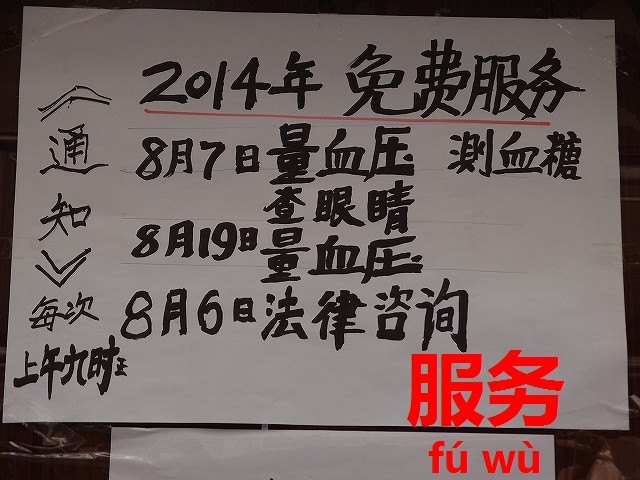 《通知》
每次
上午九时正
2014年 免费服务
8月7日量血压 测血糖
查眼睛
8月19日量血压
8月6日法律咨询
服务
fú wù